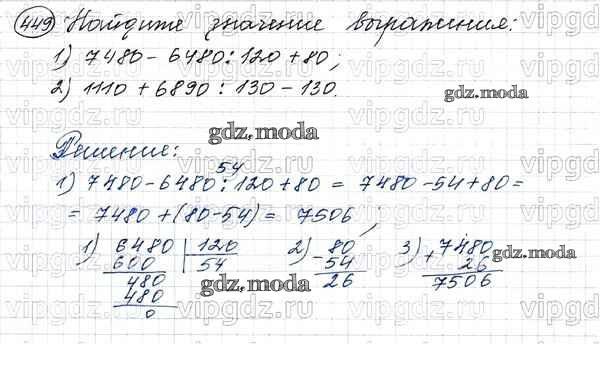 449 Найдите значение выражения:
1) 7480 - 6480 : 120 + 80;
2) 1110 + 6890 : 130 - 130.
gdz.moda
gdz.moda
Решение:
54
1) 7480 - 6480 : 120 + 80 = 7480 - 54 + 80 =
= 7480 + (80 - 54) = 7506 ;
1) 6480 120 2) 80 3) 7480 gdz.moda
600 54 - 54 + 26
480 26 7506
480 gdz.moda
0